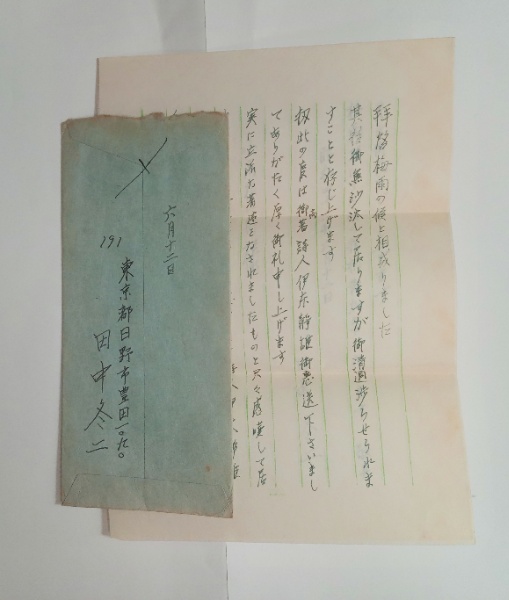 拝啓梅雨の候と相成りました
其後御無沙汰して居りますが御清適渉らせられま
すことと存じ上げます
扨此の度は御高著詩人伊東静雄御恵送下さいまし
てありがたく厚く御礼申し上げます
実に立派な著述をなされましたものと只々感嘆して居
六月十二日
191
東京都日野市豊田一〇九〇
田中冬二